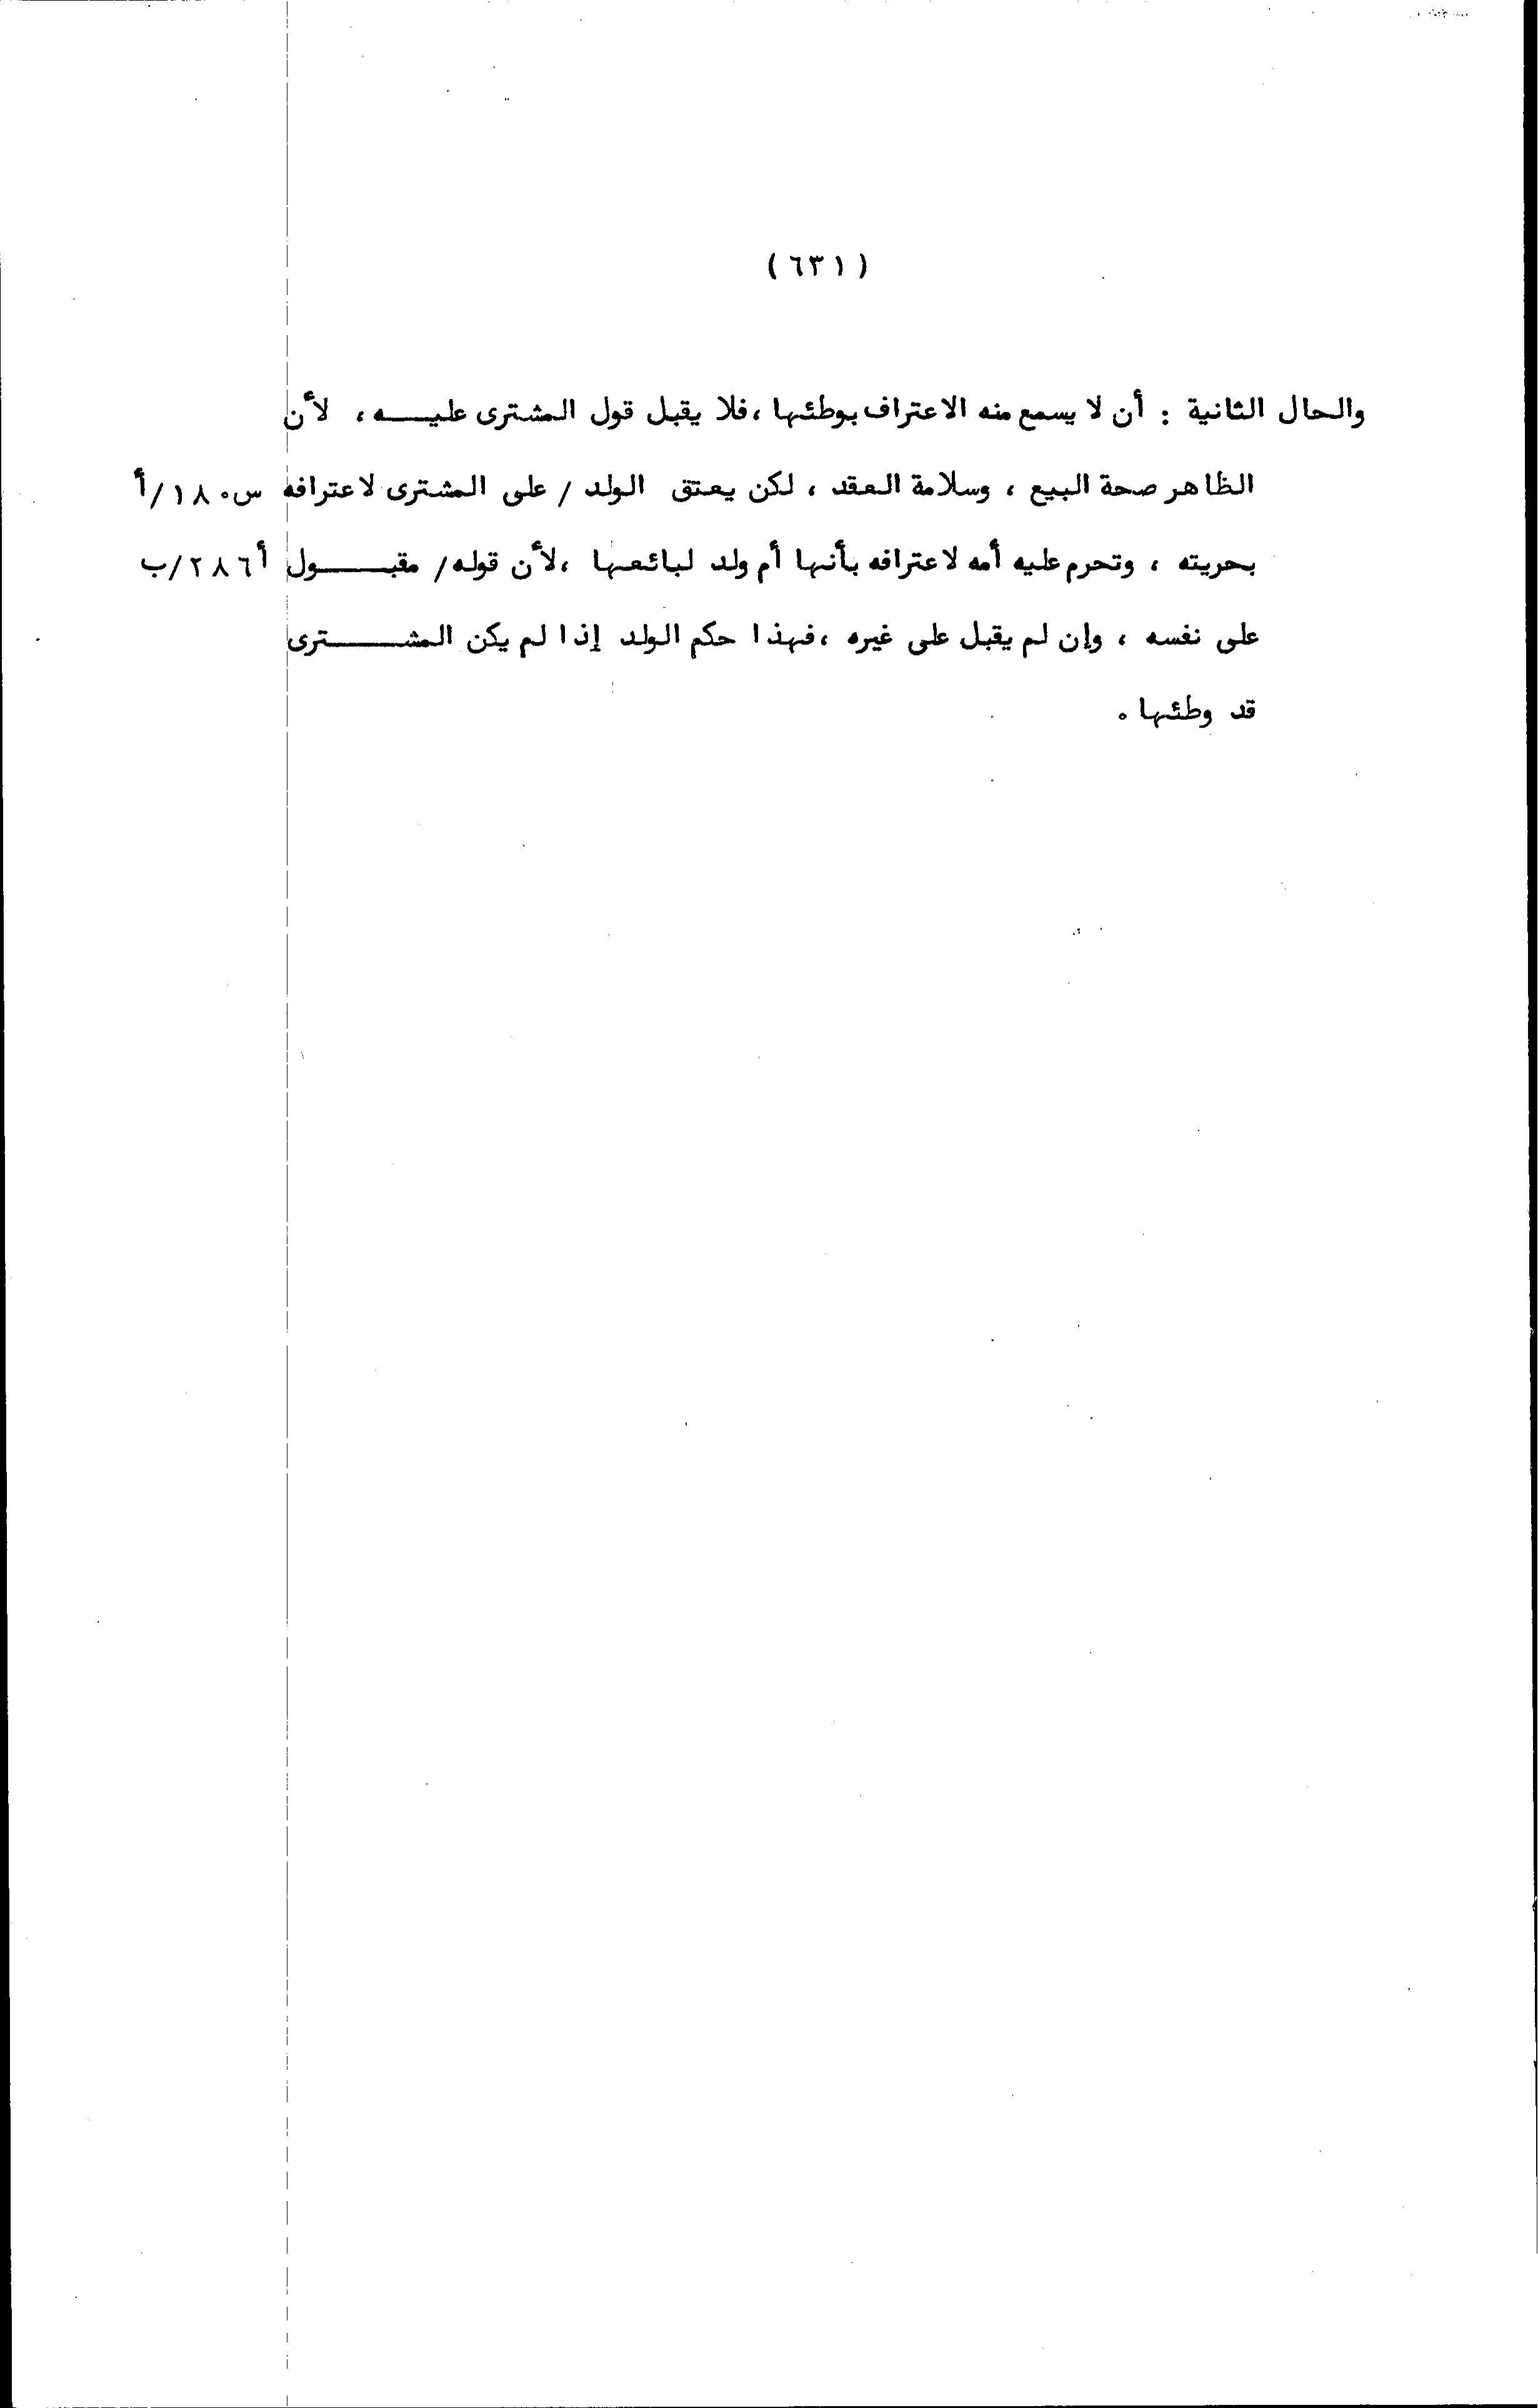 ( ٦٣١ )
والحال الثانية : أن لا يسمع منه الاعتراف بوطئها ، فلا يقبل قول المشترى عليـــه ، لأن
الظاهر صحة البيع ، وسلامة العقد ، لكن يعتق الولد / على المشترى لاعترافه س١٨٠/أ
بحريته ، وتحرم عليه أمه لاعترافه بأنها أم ولد لبائعها ، لأن قوله / مقبـــول أ٢٨٦/ب
على نفسه ، وإن لم يقبل على غيره ، فهذا حكم الولد إذا لم يكن المشـــترى
قد وطئها .